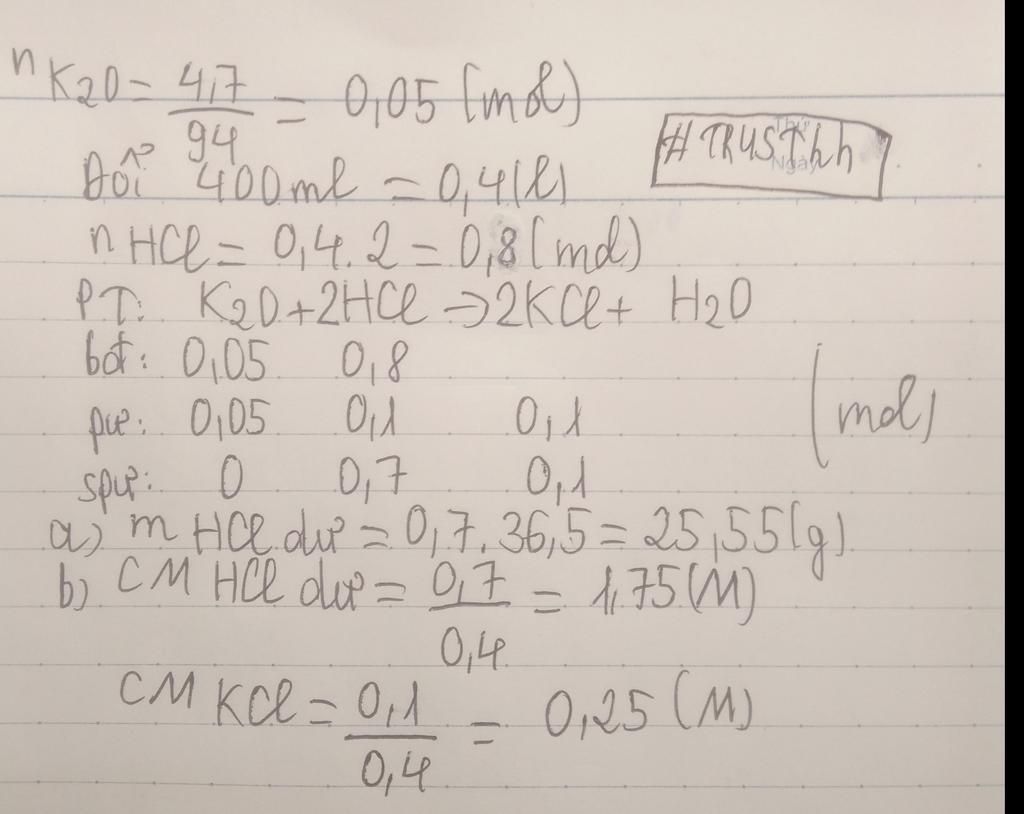 nK2O = 4,7/94 = 0,05 (mol)
#TRUSThh
Thứ
Ngày
Đổi 400ml = 0,4(l)
nHCl = 0,4.2 = 0,8 (mol)
PT: K2O + 2HCl → 2KCl + H2O
bđ: 0,05 0,8
pư: 0,05 0,1 0,1 (mol)
spư: 0 0,7 0,1
a) m HCl dư = 0,7.36,5 = 25,55(g)
b) CM HCl dư = 0,7/0,4 = 1,75(M)
CM KCl = 0,1/0,4 = 0,25 (M)